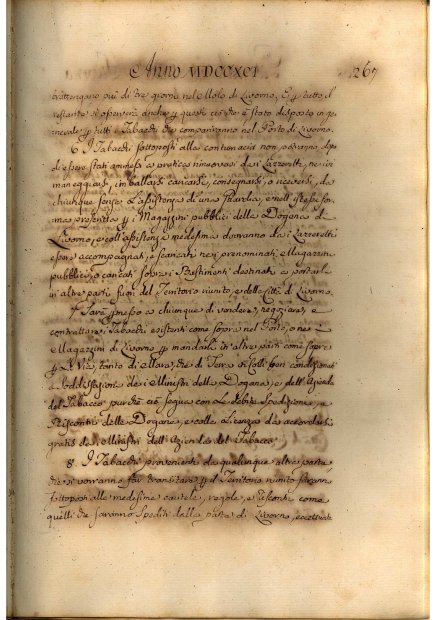 Anno MDCCXCI 267
trattengano più di tre giorni nel Molo di Livorno, E p tutto il
restante si osserverà anche p questi ciò che è stato disposto in ge-
nerale p tutti i Tabacchi che compariranno nel Porto di Livorno.
6. I Tabacchi sottoposti alla contumacia non potranno dopo
di essere stati ammessi a pratica rimuoversi dai Lazzeretti, ne ivi
maneggiarsi, imballarsi, caricarsi, consegnarsi, o riceversi, da
chiunque senza l'assistenza di una Guardia, e nell' istessa for
ma prescritta p i Magazzini pubblici della Dogana di
Livorno, e coll' assistenza medesima dovranno dai Lazzeretti
essere accompagnati, e scaricati nei prenominati Magazzini
pubblici, o caricati sopra i Bastimenti destinati a portarli
in altre parti fuori del Territorio riunito, e della Città di Livorno.
7. Sarà permesso a chiunque di vendere, negoziare, e
contrattare i Tabacchi esistenti come sopra nel Porto, o nei
Magazzini di Livorno p mandarli in altre parti come sopra
p la Via, tanto di Mare, che di Terra in Colli ben condizionati
a soddisfazione dei Ministri della Dogana, e dell' Azienda
del Tabacco purche ciò segua con le debite Spedizioni, e
Riscontri della Dogana, e colla Licenza da accordarsi
gratis dai Ministri dell' Azienda del Tabacco.
8. I Tabacchi provenienti da qualunque altra parte
che si vorranno far transitare p il Territorio riunito saranno
sottoposti alle medesime cautele, regole, e riscontri come
quelli che saranno spediti dalla parte di Livorno, eccettuate